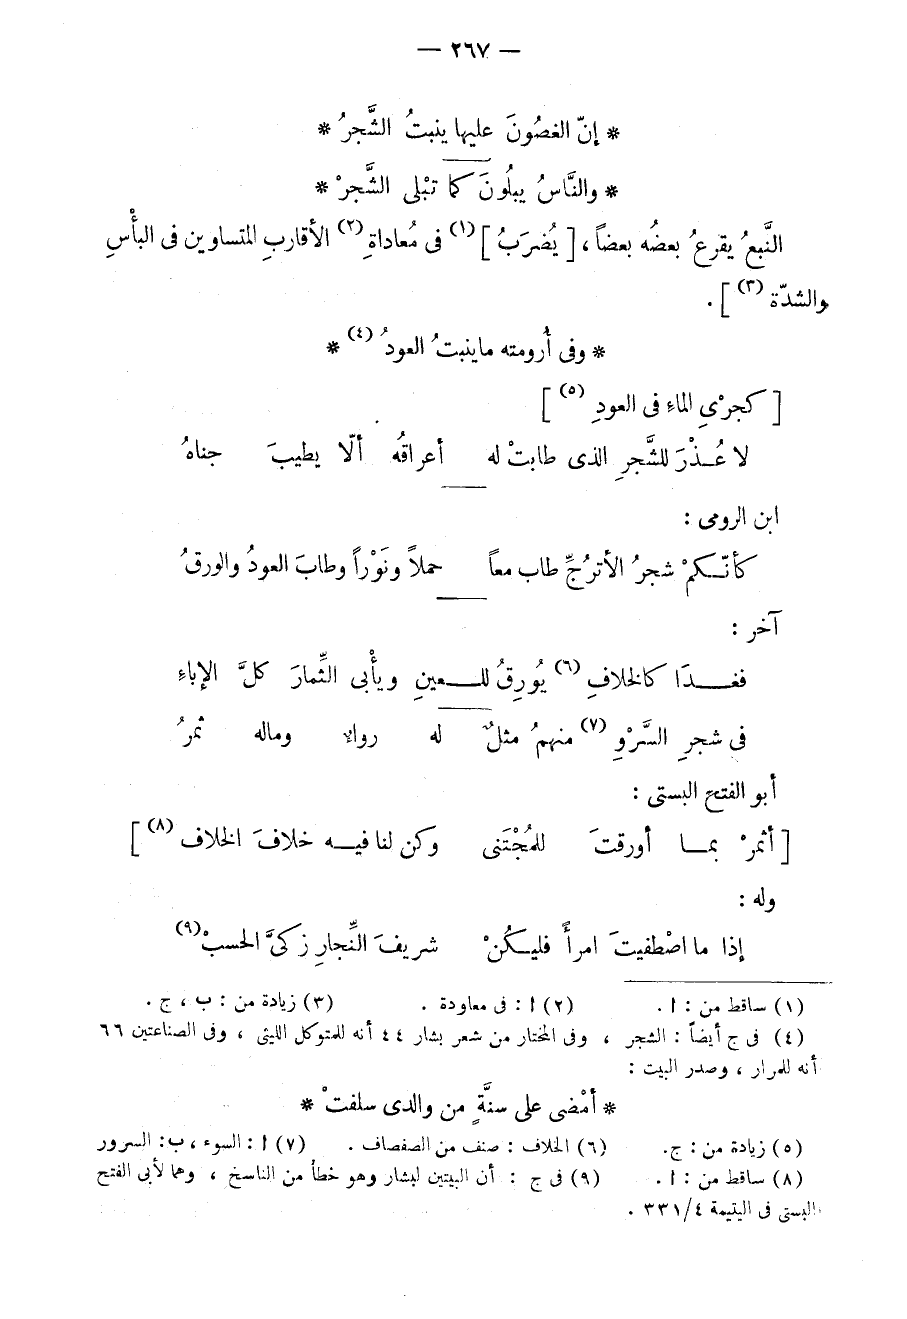 — ٢٦٧ —
* إنّ الغصُونَ عليها ينبتُ الشَّجرُ *
* والنَّاسُ يبلُونَ كما تبْلى الشَّجرْ *
النَّبعُ يقرعُ بعضُه بعضاً ، [ يُضرَبُ ] (١) فى مُعاداةِ (٢) الأقاربِ المتساوين فى البأْسِ
والشدّة (٣) ] .
* وفى أُرومته ماينبتُ العودُ (٤) *
[ كجرْىِ الماءِ فى العودِ (٥) ]
لا عُـذْرَ للشَّجرِ الذى طابتْ له أعراقُه ألّا يطيبَ جناهُ
ابن الرومى :
كأنّـكمْ شجرُ الأترُجِّ طاب معاً حملاً ونَوْراً وطابَ العودُ والورقُ
آخر :
فغـدَا كالخلافِ (٦) يُورِقُ للـعينِ ويأْبى الثِّمارَ كلَّ الإباءِ
فى شجرِ السَّرْوِ (٧) منهمُ مثلٌ له رواءٌ وماله ثمرُ
أبو الفتح البستى :
[ أثمرْ بمـا أورقتَ للمُجْتَنى وكن لنا فيـه خلافَ الخلاف (٨) ]
وله :
إذا ما اصْطفيتَ امرأً فليـكُنْ شريفَ النِّجارِ زكىَّ الحسبْ (٩)
(١) ساقط من : ا . (٢) ا : فى معاودة . (٣) زيادة من : ب ، ج .
(٤) فى ج أيضاً : الشجر ، وفى المختار من شعر بشار ٤٤ أنه للمتوكل الليثى ، وفى الصناعتين ٦٦
أنه للمرار ، وصدر البيت :
* أمْضى على سنَّةٍ من والدى سلفتْ *
(٥) زيادة من : ج. (٦) الخلاف : صنف من الصفصاف . (٧) ا : السوء ، ب: السرور
(٨) ساقط من : ا . (٩) فى ج : أن البيتين لبشار وهو خطأ من الناسخ ، وهما لأبى الفتح
البستى فى اليتيمة ٣٣١/٤ .